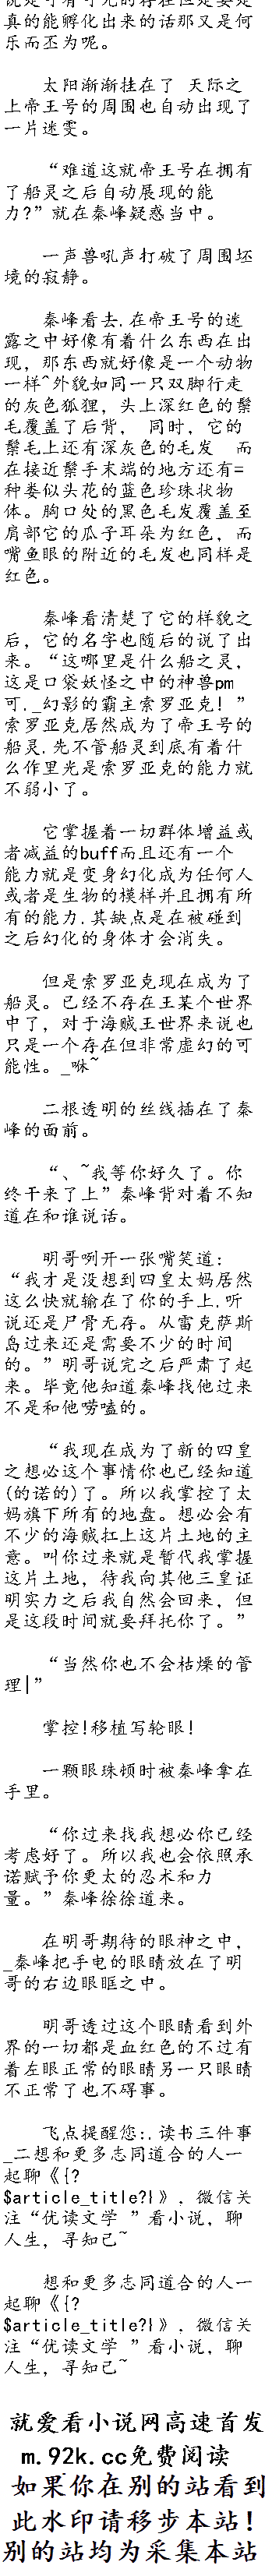 说是可有可无的存在但是要是
真的能孵化出来的话那又是何
乐而丕为呢。
太阳渐渐挂在了 天际之
上帝王号的周围也自动出现了
一片迷雯。
“难道这就帝王号在拥有
了船灵之后自动展现的能
力?”就在秦峰疑惑当中。
一声兽吼声打破了周围坯
境的寂静。
秦峰看去.在帝王号的迷
露之中好像有着什么东西在出
现，那东西就好像是一个动物
一样^外貌如同一只双脚行走
的灰色狐狸，头上深红色的鬃
毛覆盖了后背， 同时，它的
鬃毛上还有深灰色的毛发 而
在接近鬃手末端的地方还有=
种娄似头花的蓝色珍珠状物
体。胸口处的黑色毛发覆盖至
肩部它的瓜子耳朵为红色，而
嘴鱼眼的附近的毛发也同样是
红色。
秦峰看清楚了它的样貌之
后，它的名字也随后的说了出
来。“这哪里是什么船之灵，
这是口袋妖怪之中的神兽pm
可._幻影的霸主索罗亚克！”
索罗亚克居然成为了帝王号的
船灵.先不管船灵到底有着什
么作里光是索罗亚克的能力就
不弱小了。
它掌握着一切群体增益或
者减益的buff而且还有一个
能力就是变身幻化成为任何人
或者是生物的模样并且拥有所
有的能力.其缺点是在被碰到
之后幻化的身体才会消失。
但是索罗亚克现在成为了
船灵。已经不存在王某个世界
中了，对于海贼王世界来说也
只是一个存在但非常虚幻的可
能性。_咻~
二根透明的丝线插在了秦
峰的面前。
“、~我等你好久了。你
终干来了上”秦峰背对着不知
道在和谁说话。
明哥咧开一张嘴笑道：
“我才是没想到四皇太妈居然
这么快就输在了你的手上.听
说还是尸骨无存。从雷克萨斯
岛过来还是需要不少的时间
的。”明哥说完之后严肃了起
来。毕竟他知道秦峰找他过来
不是和他唠嗑的。
“我现在成为了新的四皇
之想必这个事情你也已经知道
(的诺的)了。所以我掌控了太
妈旗下所有的地盘。想必会有
不少的海贼扛上这片土地的主
意。叫你过来就是暂代我掌握
这片土地，待我向其他三皇证
明实力之后我自然会回来，但
是这段时间就要拜托你了。”
“当然你也不会枯燥的管
理|”
掌控!移植写轮眼!
一颗眼珠顿时被秦峰拿在
手里。
“你过来找我想必你已经
考虑好了。所以我也会依照承
诺赋予你更太的忍术和力
量。”秦峰徐徐道来。
在明哥期待的眼神之中，
_秦峰把手电的眼睛放在了明
哥的右边眼眶之中。
明哥透过这个眼睛看到外
界的一切都是血红色的不过有
着左眼正常的眼睛另一只眼睛
不正常了也不碍事。
飞点提醒您:.读书三件事
_二想和更多志同道合的人一
起聊《{?
$article_title?}》，微信关
注“优读文学 ”看小说，聊
人生，寻知己~
想和更多志同道合的人一
起聊《{?
$article_title?}》，微信关
注“优读文学 ”看小说，聊
人生，寻知己~
就爱看小说网高速首发
m.92k.cc免费阅读
如果你在别的站看到
此水印请移步本站!
别的站均为采集本站